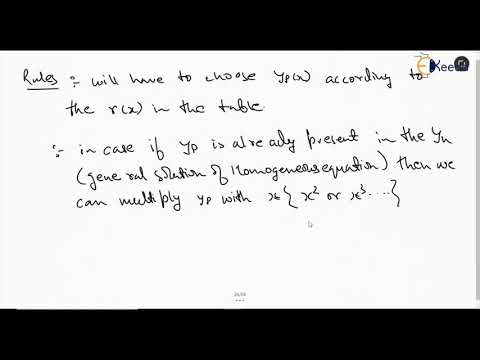 Rules :- will have to choose yp(x) according to
the r(x) in the table.
:- in case if yp is already present in the yh
(general solution of Homogeneous equation) then we
can multiply yp with x { x² or x³ .... }